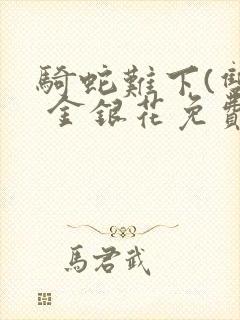 騎蛇難下(雙
金銀花免費
馬君武